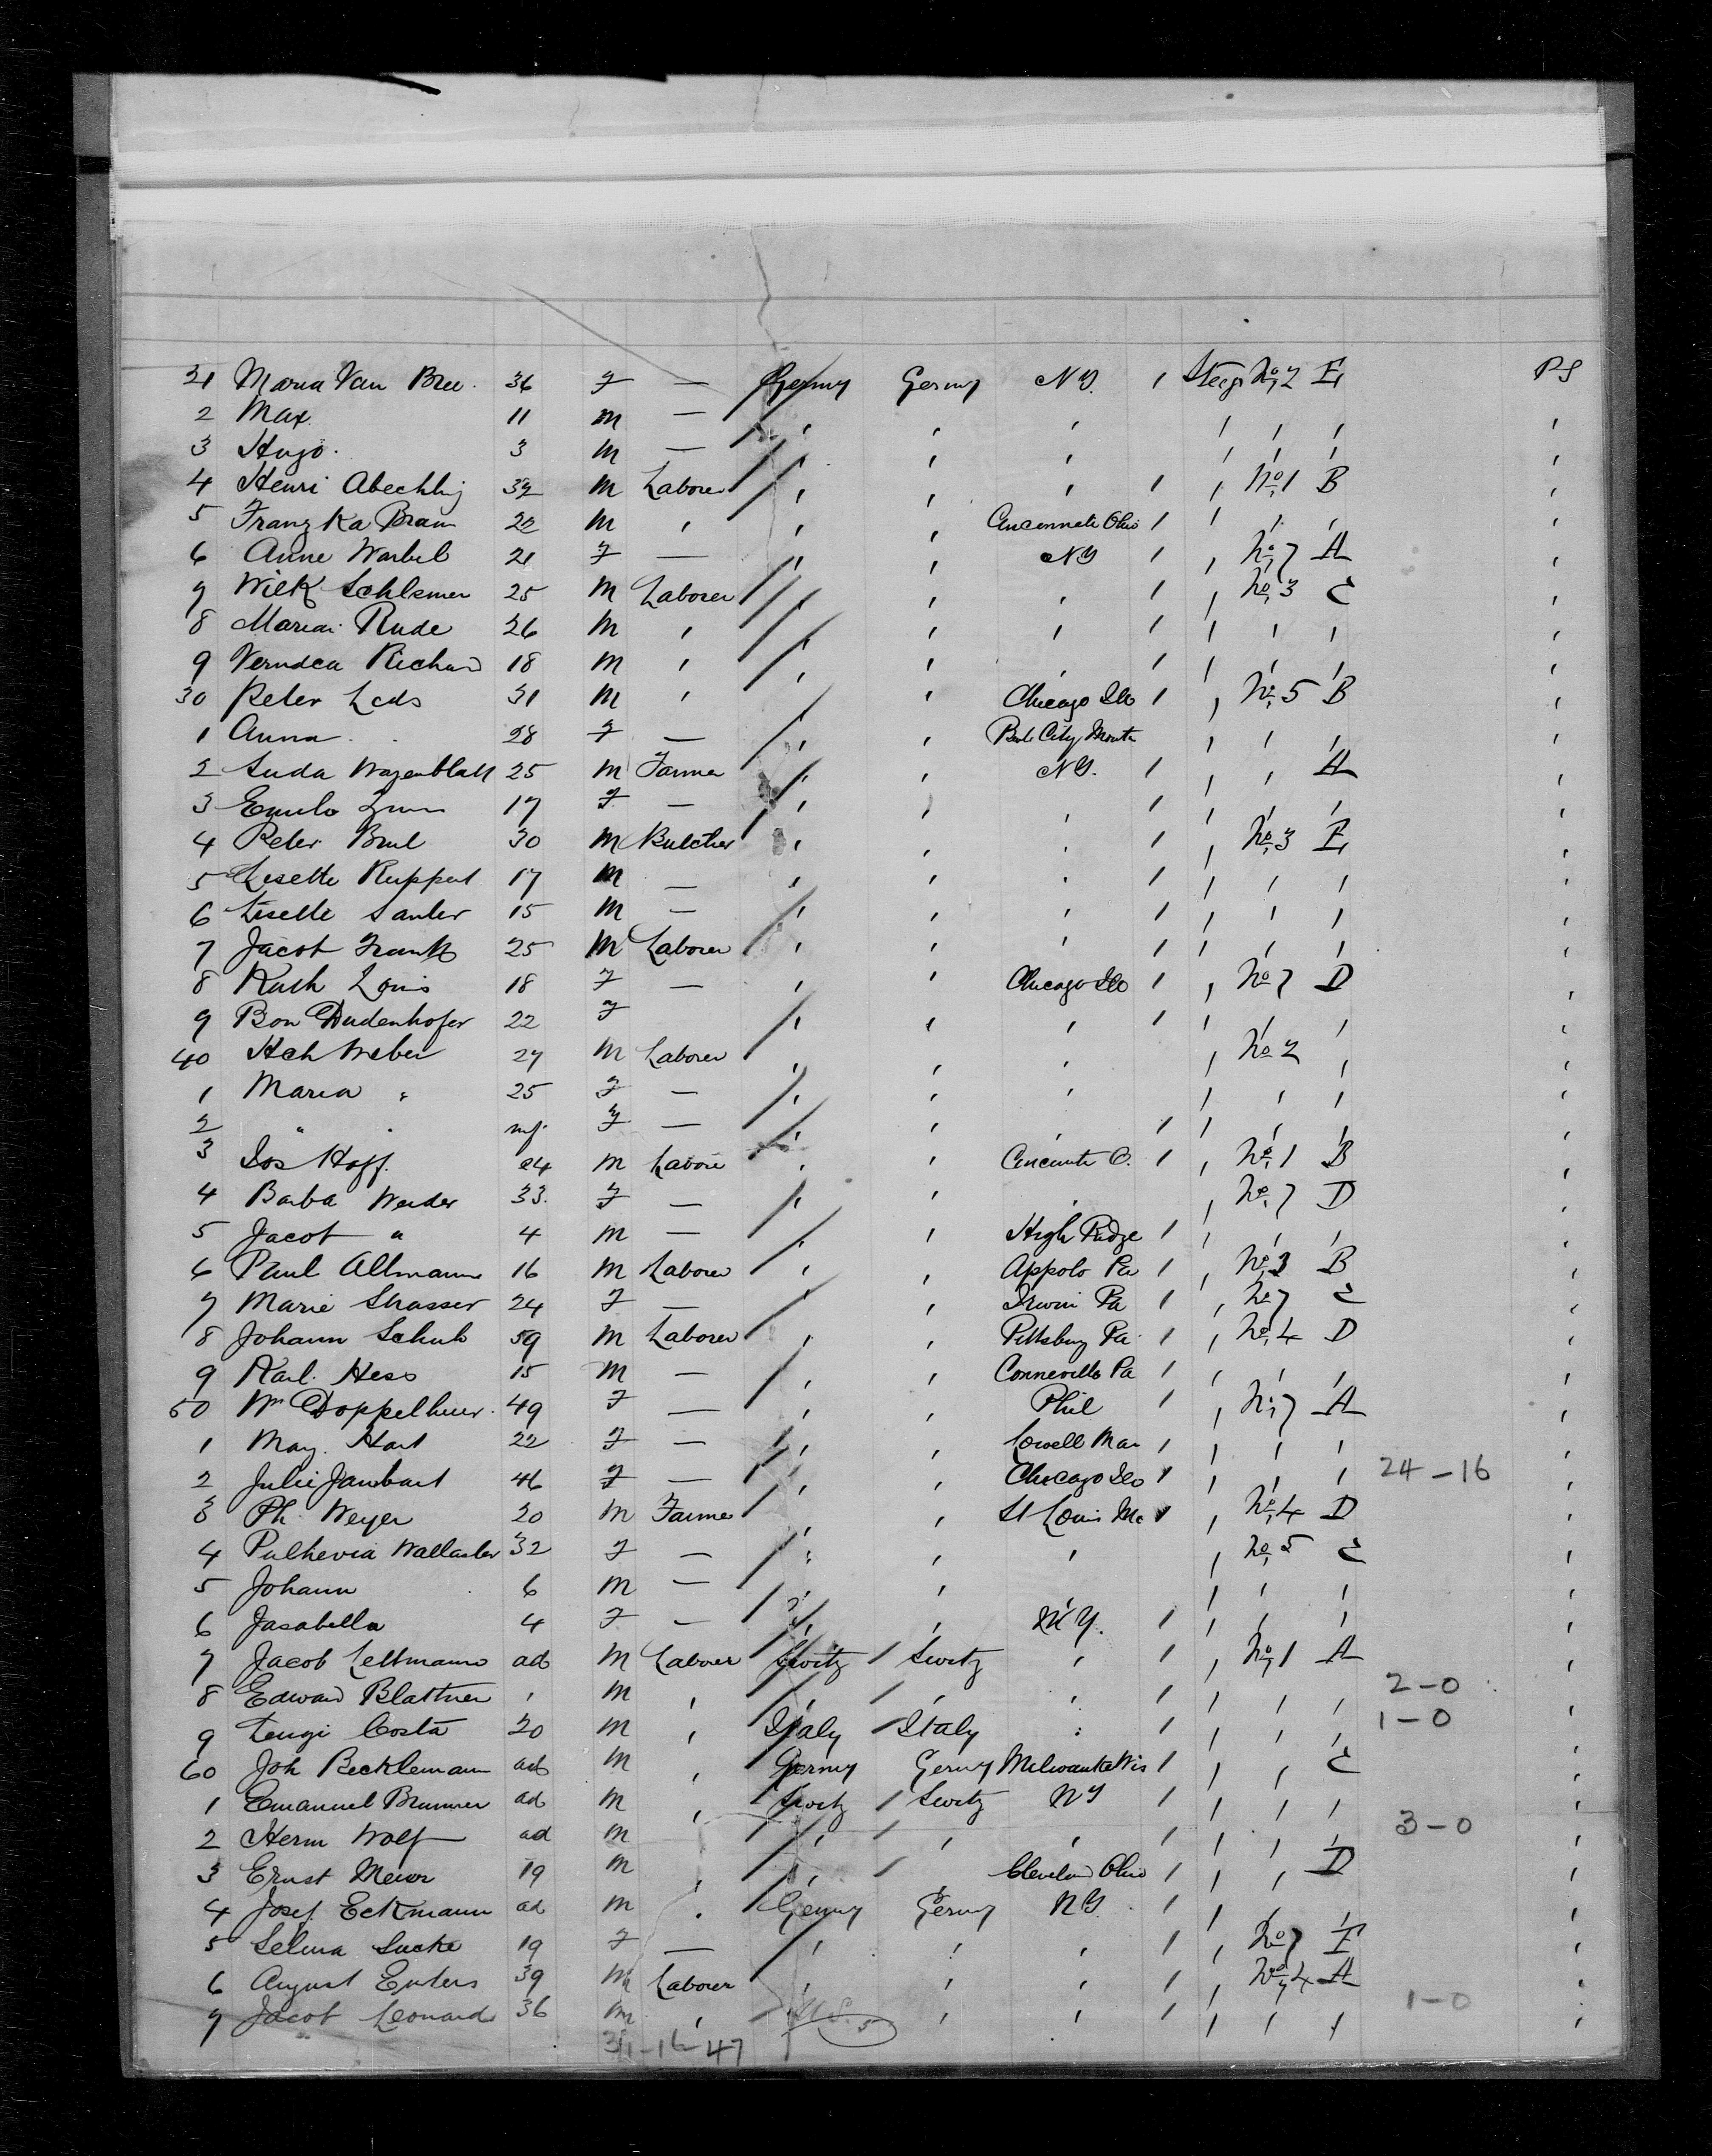 21 Maria Van Bree. 36 F — Germy Germy N Y. 1 Steeg No 2 E PS
2 Max. 11 M — " " " " " " "
3 Hugo. 3 M — " " " " " " "
4 Henri 32 M Laborer " " " 1 " No 1 B "
5 Franz Ka Bram 22 M " " " Cincennati Ohio 1 " " " "
6 Anne Warbel 21 F — " " N Y 1 " No 7 A "
7 Wilk Schlemer 25 M Laborer " " " 1 " No 3 C "
8 Maria Rude 26 M " " " " 1 " " " "
9 Richard 18 M " " " " 1 " " " "
30 Peter Leds 31 M " " " Chicago Ills 1 " No 5 B "
1 Anna 28 F — " " City " " " "
2 Wagenblatt 25 M Farmer " " N Y. 1 " " A "
3 17 F — " " " 1 " " " "
4 Peter Brul 30 M Butcher " " " 1 " No 3 E "
5 Lisette Ruppert 17 M — " " " 1 " " " "
6 Lisette Sauter 15 M — " " " 1 " " " "
7 Jacob Frank 25 M Laborer " " " 1 " " " "
8 Kath Louis 18 F — " " Chicago Ills 1 " No 7 D "
9 Bon Dudenhofer 22 F " " " 1 " " " "
40 Hch Weber 27 M Laborer " " " " No 2 " "
1 Maria " 25 F — " " " " " " "
2 " " inf. F — " " " 1 " " " "
3 Jos Hoff. 24 M Labore " " Cincinnati O. 1 " No 1 B "
4 Barba Werder 33. F — " " " " No 7 D "
5 Jacob " 4 M — " " High Ridge 1 " " " "
6 Paul Allmann 16 M Laborer " " Appolo Pa 1 " No 3 B "
7 Marie Strasser 24 F — " " Irwin Pa 1 " No 7 C "
8 Johann Schub 59 M Laborer " " Pittsburg Pa 1 " No 4 D "
9 Karl. Hess 15 M — " " Connevills Pa 1 " " " "
50 Wm Doppelheuer. 49 F — " " Phil 1 " No 7 A "
1 May. Hart 22 F — " " Lowell Mas 1 " " " "
2 Julie Jambart 46 F — " " Chicago Ills 1 " " " 24-16 "
3 Ph. Weyer 20 M Farmer " " St Louis Mo 1 " No 4 D "
4 Pulheria Wallaster 32 F — " " " " No 5 C "
5 Johann 6 M — " " " " " "
6 Jasabella 4 F — " " N Y. 1 " " " "
7 Jacob Lettmann ad M Laborer Switz 1 Switz " 1 " No 1 A "
8 Edward Blattner " M " " 1 " " 1 " " " 2-0 "
9 Luigi Costa 20 M " Italy 1 Italy " 1 " " " 1-0 "
60 Joh Becklemann ad M " Germy Germy Milwauke Wis 1 " " C "
1 Emanuel Brunner ad M " Switz 1 Switz N Y 1 " " " "
2 Herm Wolf ad M " 1 " " 1 " " " 3-0 "
3 Ernst Meior 19 M " " 1 " Cleveland Ohio 1 " " D "
4 Josef. Eckmann ad M " Germy Germy N Y 1 " " " "
5 Selma Sucke 19 F — " " " 1 " No 7 E "
6 August Enters 39 M Laborer " " " 1 " No 4 A "
7 Jacob Leonard 36 M " U.S. 5 " " 1 " " " 1-0 "
31-16-47